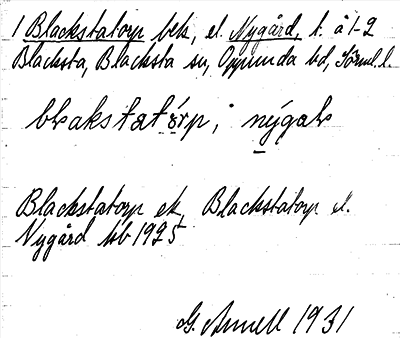 1 Blackstatorp bek, el. Nygård, t. å 1-2
Blacksta, Blacksta sn, Oppunda hd, Sörml. l.
blakstatårp, nýgaḷ
Blackstatorp ek, Blackstatorp el.
Nygård jb 1925
G. Annell 1931